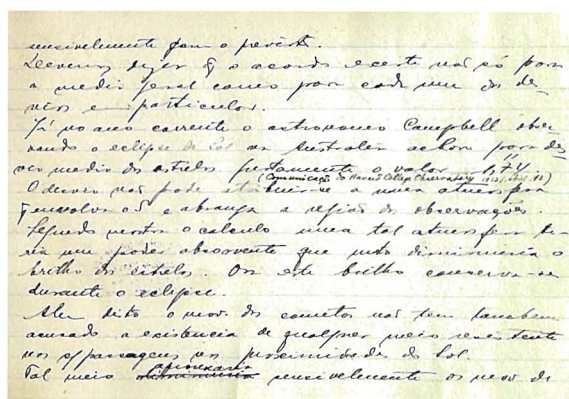 sensivelmente com o previsto.
Devemos dizer q̃ o acordo existe não só para
a media geral como para cada um dos des-
vios em particular.
Já no ano corrente o astronomo Campbell obser-
vando o eclipse de Sol na Australia achou para des-
vio medio dos astros justamente o valor 1,"74
(Comunicação do Harvard College Observatory
O desvio não pode atribuir-se a uma atmosfera
q̃ envolva o S e abranja a região das observações.
Segundo mostra o calculo uma tal atmosfera te-
ria um poder absorvente que muito diminuiria o
brilho das estrelas. Ora este brilho conserva-se
durante o eclipse.
Alem disto o mov. dos cometas não tem tambem
acusado a existencia de qualquer meio resistente
nas s/ passagens nas proximidades do Sol.
Tal meio apressaria sensivelmente os mov. de